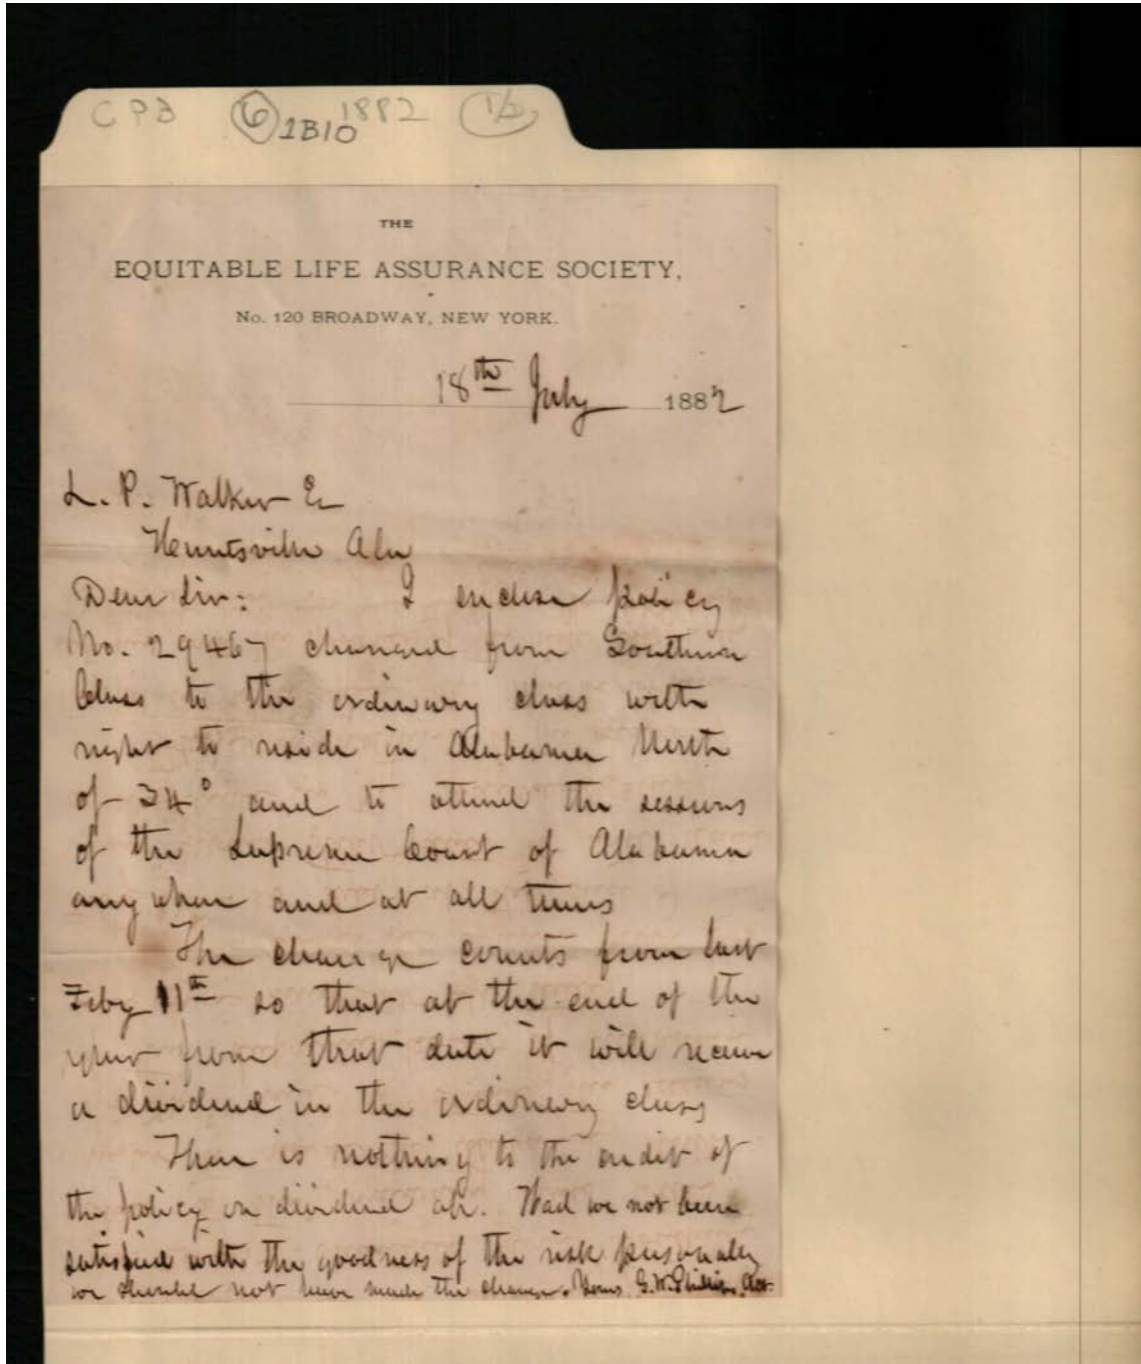 CPB 6 1882 1/2
1B10
THE
EQUITABLE LIFE ASSURANCE SOCIETY,
No. 120 BROADWAY, NEW YORK.
18th July 1882
L. P. Walker
Huntsville Ala
Dear Sir: I enclose policy
No. 29467 changed from Southern
Class to the ordinary class with
right to reside in Alabama North
of 34° and to attend the sessions
of the Supreme Court of Alabama
any where and at all times
The change counts from last
Feby 11th so that at the end of the
year from that date it will receive
a dividend in the ordinary class
There is nothing to the credit of
the policy on dividend a/c. Had we not been
satisfied with the goodness of the risk personally
we should not have made the change. Yours G. W. Phillips, Act.